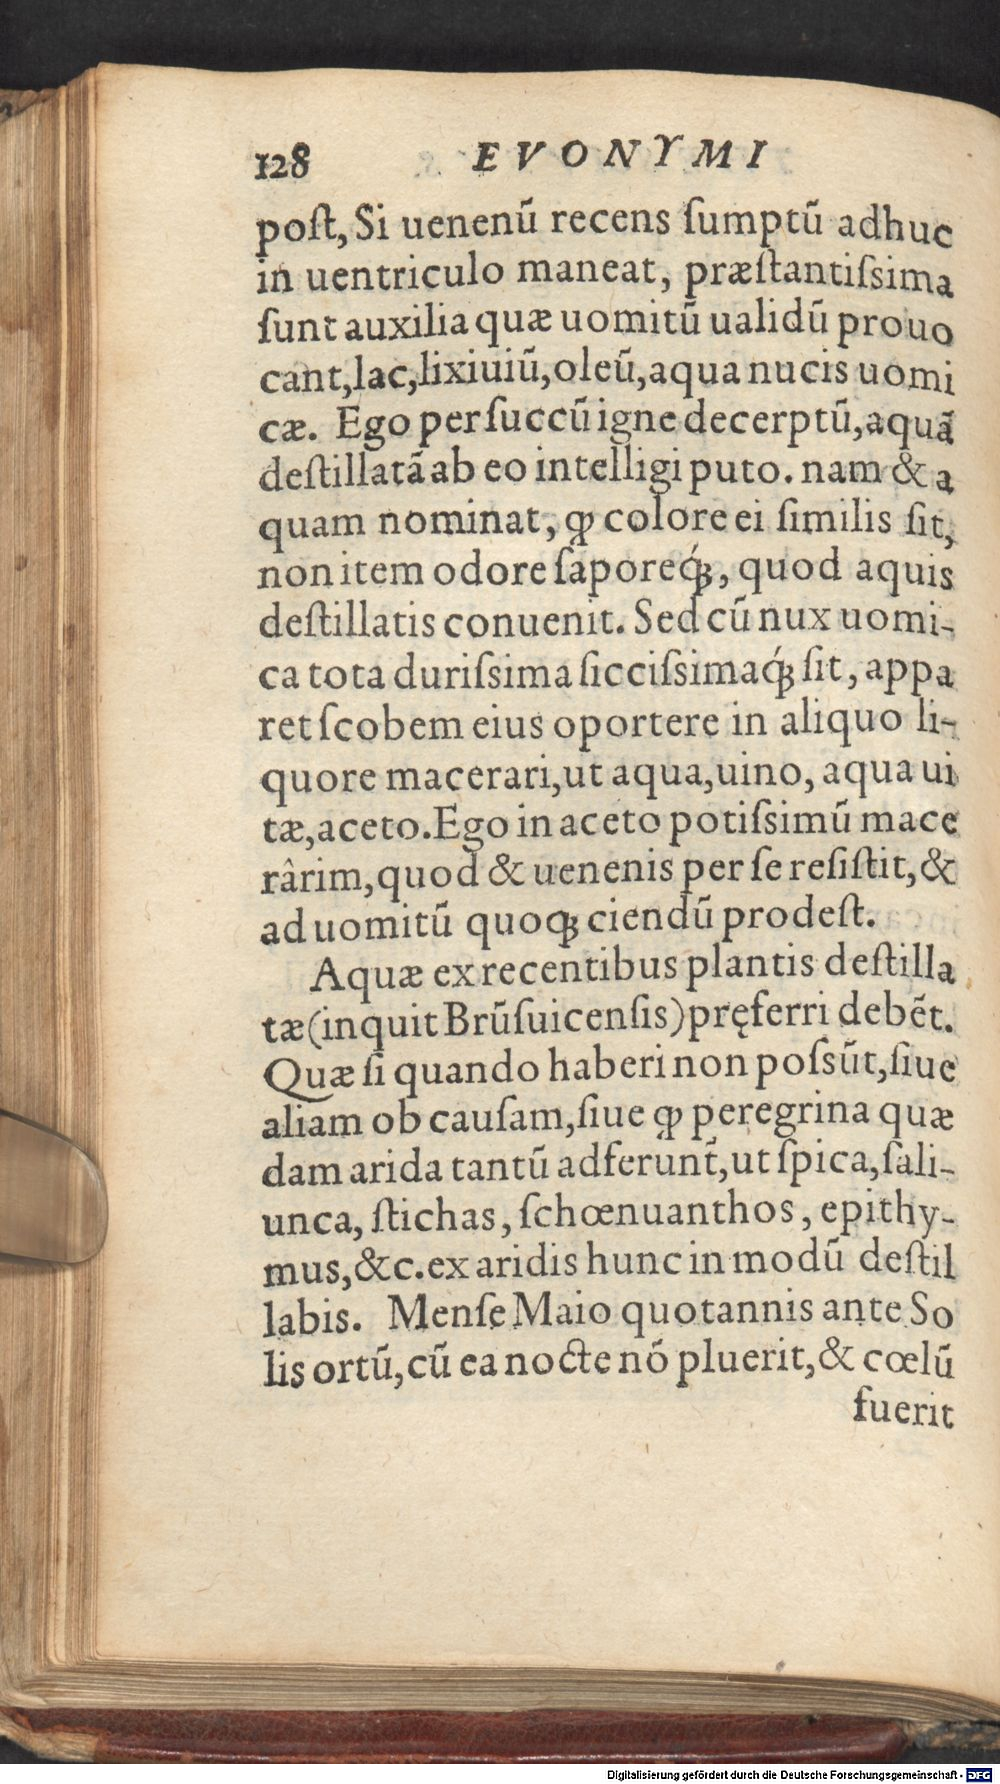 128 EVONYMI
poſt, Si uenenũ recens ſumptũ adhuc
in uentriculo maneat, præſtantiſsima
ſunt auxilia quæ uomitũ ualidũ prouo
cant, lac, lixiuiũ, oleũ, aqua nucis uomi
cæ. Ego per ſuccũ igne decerptũ, aquã
deſtillatã ab eo intelligi puto. nam & a
quam nominat, ꝙ colore ei ſimilis ſit,
non item odore ſaporeq́ꝫ, quod aquis
deſtillatis conuenit. Sed cũ nux uomi-
ca tota duriſsima ſicciſsimaq́ꝫ ſit, appa
ret ſcobem eius oportere in aliquo li-
quore macerari, ut aqua, uino, aqua ui
tæ, aceto. Ego in aceto potiſsimũ mace
rârim, quod & uenenis per ſe reſiſtit, &
ad uomitũ quoqꝫ ciendũ prodeſt.
Aquæ ex recentibus plantis deſtilla
tæ (inquit Brũſuicenſis) pręferri debẽt.
Quæ ſi quando haberi non poſsũt, ſiue
aliam ob cauſam, ſiue ꝙ peregrina quæ
dam arida tantũ adferunt̃, ut ſpica, ſali-
unca, ſtichas, ſchœnuanthos, epithy-
mus, &c. ex aridis hunc in modũ deſtil
labis. Menſe Maio quotannis ante So
lis ortũ, cũ ea nocte nõ pluerit, & cœlũ
fuerit
Digitalisierung gefördert durch die Deutsche Forschungsgemeinschaft - DFG